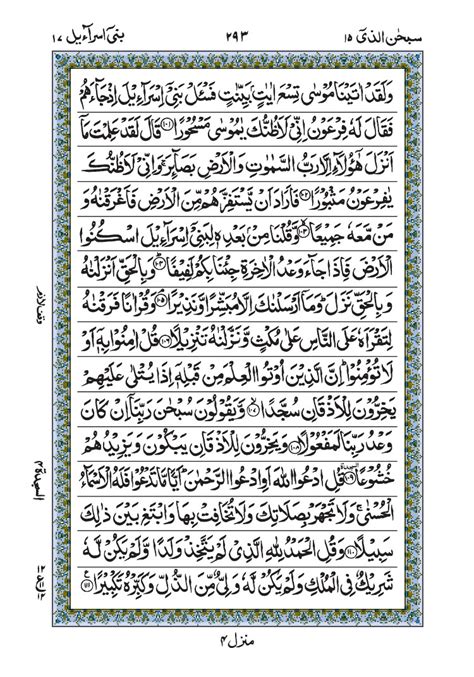 سبحٰن الذی ۱۵ ۲۹۳ بنی اسرآءیل ۱۷
وَلَقَدْ اٰتَيْنَا مُوْسٰى تِسْعَ اٰيٰتٍۢ بَيِّنٰتٍ فَسْـَٔلْ بَنِيْۤ اِسْرَآءِيْلَ اِذْ جَآءَهُمْ
فَقَالَ لَهٗ فِرْعَوْنُ اِنِّيْ لَاَظُنُّكَ يٰمُوْسٰى مَسْحُوْرًا ۝۱۰۱ قَالَ لَقَدْ عَلِمْتَ مَاۤ
اَنْزَلَ هٰۤؤُلَآءِ اِلَّا رَبُّ السَّمٰوٰتِ وَالْاَرْضِ بَصَآىِٕرَ ۚ وَاِنِّيْ لَاَظُنُّكَ
يٰفِرْعَوْنُ مَثْبُوْرًا ۝۱۰۲ فَاَرَادَ اَنْ يَّسْتَفِزَّهُمْ مِّنَ الْاَرْضِ فَاَغْرَقْنٰهُ وَ
مَنْ مَّعَهٗ جَمِيْعًا ۝۱۰۳ وَّقُلْنَا مِنْۢ بَعْدِهٖ لِبَنِيْۤ اِسْرَآءِيْلَ اسْكُنُوا
الْاَرْضَ فَاِذَا جَآءَ وَعْدُ الْاٰخِرَةِ جِئْنَا بِكُمْ لَفِيْفًا ۝۱۰۴ وَبِالْحَقِّ اَنْزَلْنٰهُ
وَبِالْحَقِّ نَزَلَ ۗ وَمَاۤ اَرْسَلْنٰكَ اِلَّا مُبَشِّرًا وَّنَذِيْرًا ۝۱۰۵ وَقُرْاٰنًا فَرَقْنٰهُ
لِتَقْرَاَهٗ عَلَى النَّاسِ عَلٰى مُكْثٍ وَّنَزَّلْنٰهُ تَنْزِيْلًا ۝۱۰۶ قُلْ اٰمِنُوْا بِهٖۤ اَوْ
لَا تُؤْمِنُوْا ۗ اِنَّ الَّذِيْنَ اُوْتُوا الْعِلْمَ مِنْ قَبْلِهٖۤ اِذَا يُتْلٰى عَلَيْهِمْ
يَخِرُّوْنَ لِلْاَذْقَانِ سُجَّدًا ۝۱۰۷ وَّيَقُوْلُوْنَ سُبْحٰنَ رَبِّنَاۤ اِنْ كَانَ
وَعْدُ رَبِّنَا لَمَفْعُوْلًا ۝۱۰۸ وَيَخِرُّوْنَ لِلْاَذْقَانِ يَبْكُوْنَ وَيَزِيْدُهُمْ
خُشُوْعًا ۝۱۰۹ السجدة قُلِ ادْعُوا اللّٰهَ اَوِ ادْعُوا الرَّحْمٰنَ ۗ اَيًّا مَّا تَدْعُوْا فَلَهُ الْاَسْمَآءُ
الْحُسْنٰى ۚ وَلَا تَجْهَرْ بِصَلَاتِكَ وَلَا تُخَافِتْ بِهَا وَابْتَغِ بَيْنَ ذٰلِكَ
سَبِيْلًا ۝۱۱۰ وَقُلِ الْحَمْدُ لِلّٰهِ الَّذِيْ لَمْ يَتَّخِذْ وَلَدًا وَّلَمْ يَكُنْ لَّهٗ
شَرِيْكٌ فِي الْمُلْكِ وَلَمْ يَكُنْ لَّهٗ وَلِيٌّ مِّنَ الذُّلِّ وَكَبِّرْهُ تَكْبِيْرًا ۝۱۱۱
السجدة ۴
منزل ۴